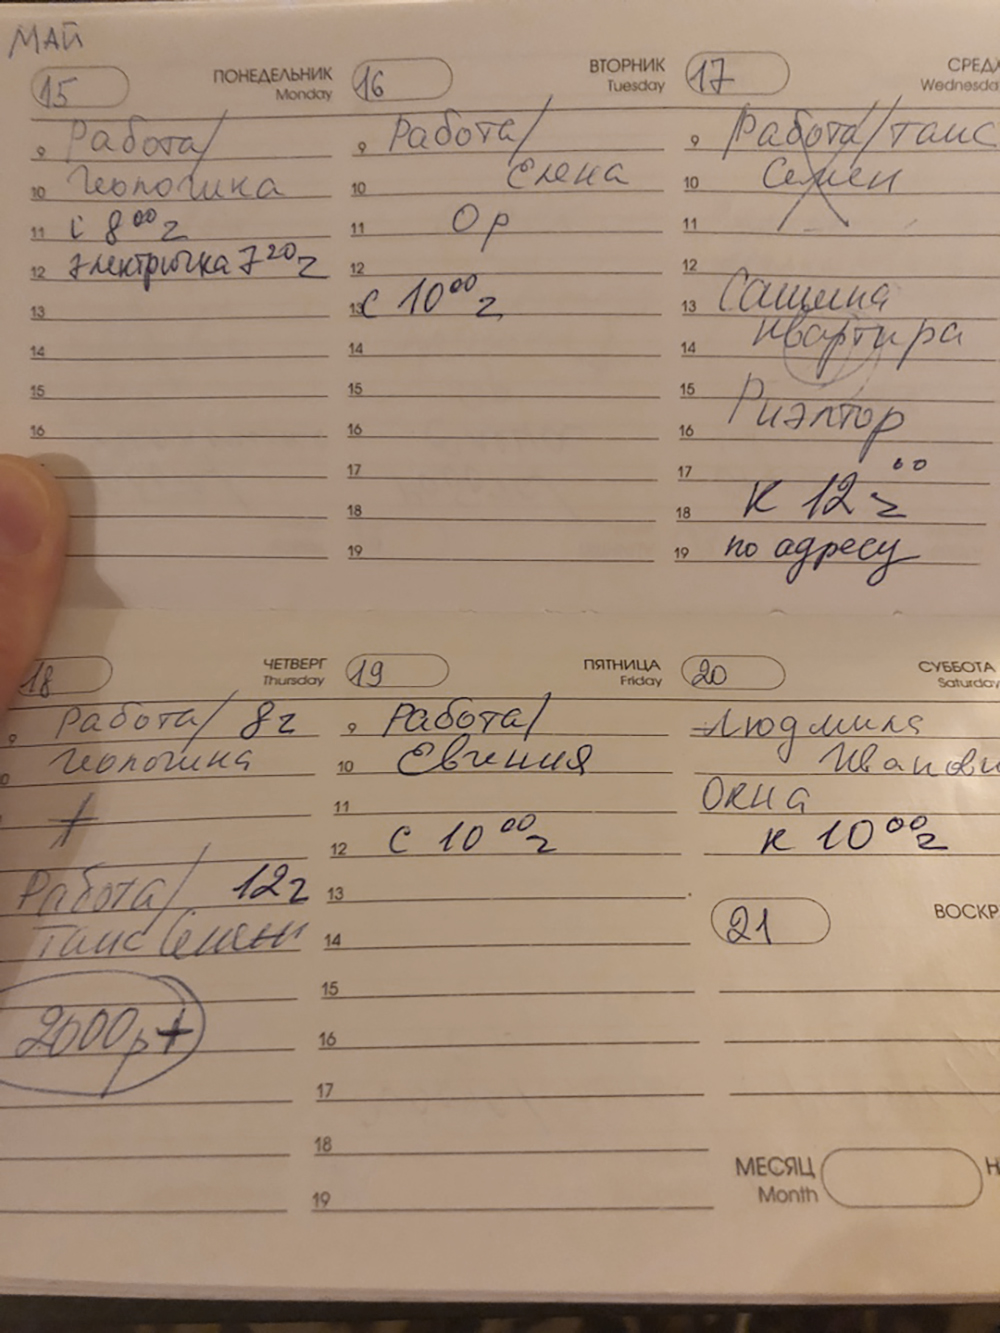 МАЙ
15 ПОНЕДЕЛЬНИК
Monday
9 Работа/
10 Геологика
11 с 8⁰⁰ г
12 электричка 7²⁰ г
13
14
15
16
16 ВТОРНИК
Tuesday
9 Работа/
10 Елена
11 Ор
12
13 с 10⁰⁰ г
14
15
16
17
18
19
17 СРЕДА
Wednesda
9 Работа/таис
10 Семен
11
12
13 Сашина
14 квартира
15
16 Риэлтор
17
18 к 12⁰⁰ г
19 по адресу
18 ЧЕТВЕРГ
Thursday
9 Работа/ 8г
0 Геологика
+
Работа/ 12г
Таис Семен
2000р +
19 ПЯТНИЦА
Friday
9 Работа/
10 Евгения
11
12 с 10⁰⁰ г
13
14
15
16
17
18
19
20 СУББОТА
Saturday
Людмила
Ивановн
Окна
к 10⁰⁰ г
21 ВОСКР
МЕСЯЦ Н
Month